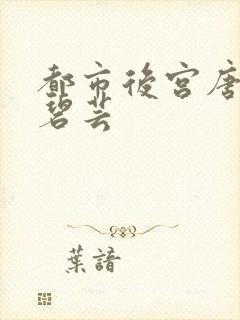 都市後宮唐
碧芸
葉諳